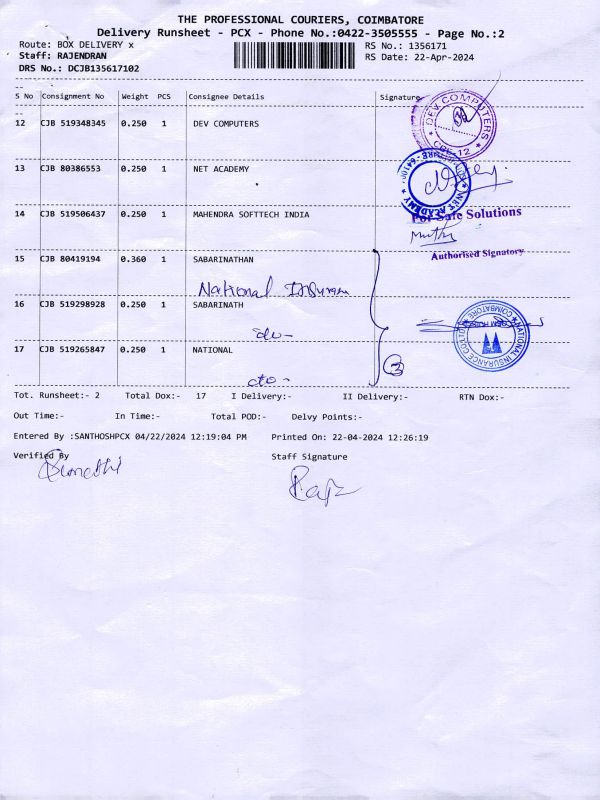 THE PROFESSIONAL COURIERS, COIMBATORE
Delivery Runsheet - PCX - Phone No.:0422-3505555 - Page No.:2
Route: BOX DELIVERY x RS No.: 1356171
Staff: RAJENDRAN RS Date: 22-Apr-2024
DRS No.: DCJB135617102
S No Consignment No Weight PCS Consignee Details Signature
12 CJB 519348345 0.250 1 DEV COMPUTERS
DEV COMPUTERS
CBE-12
13 CJB 80386553 0.250 1 NET ACADEMY
NET ACADEMY
14 CJB 519506437 0.250 1 MAHENDRA SOFTTECH INDIA
For Safe Solutions
Authorised Signatory
15 CJB 80419194 0.360 1 SABARINATHAN
National Insuran
16 CJB 519298928 0.250 1 SABARINATH
-do-
NATIONAL INSURANCE CO LTD
COIMBATORE
17 CJB 519265847 0.250 1 NATIONAL
3
Tot. Runsheet:- 2 Total Dox:- 17 I Delivery:- II Delivery:- RTN Dox:-
Out Time:- In Time:- Total POD:- Delvy Points:-
Entered By :SANTHOSHPCX 04/22/2024 12:19:04 PM Printed On: 22-04-2024 12:26:19
Verified By Staff Signature